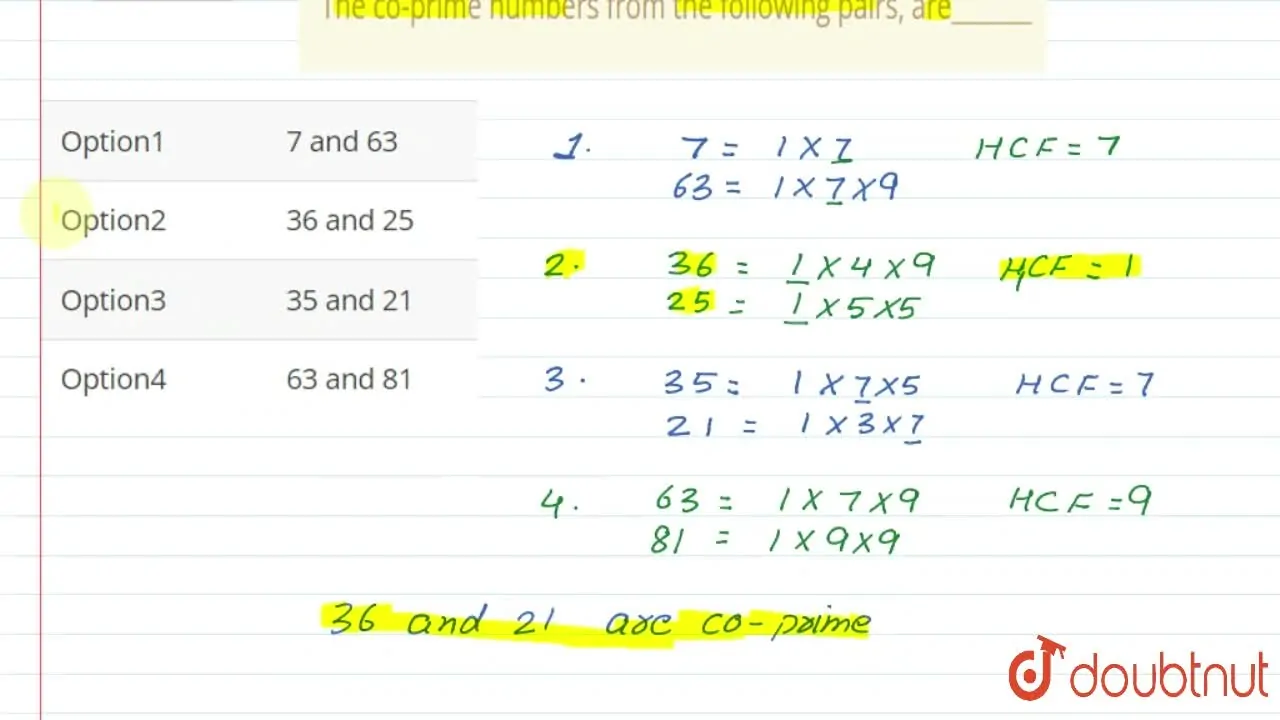 The co-prime numbers from the following pairs, are______
Option1 7 and 63
Option2 36 and 25
Option3 35 and 21
Option4 63 and 81
1. 7 = 1 X 7 HCF = 7
63 = 1 X 7 X 9
2. 36 = 1 X 4 X 9 HCF = 1
25 = 1 X 5 X 5
3. 35 = 1 X 7 X 5 HCF = 7
21 = 1 X 3 X 7
4. 63 = 1 X 7 X 9 HCF = 9
81 = 1 X 9 X 9
36 and 21 are co-prime
doubtnut